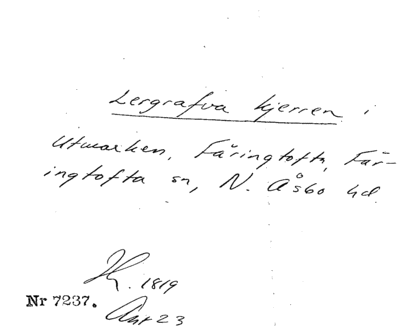 Lergrafva kjerren i
Utmarken, Färingtofta, Fär-
ingtofta sn, N. Åsbo hd.
H. 1819
Nr 7237.
Akt 23